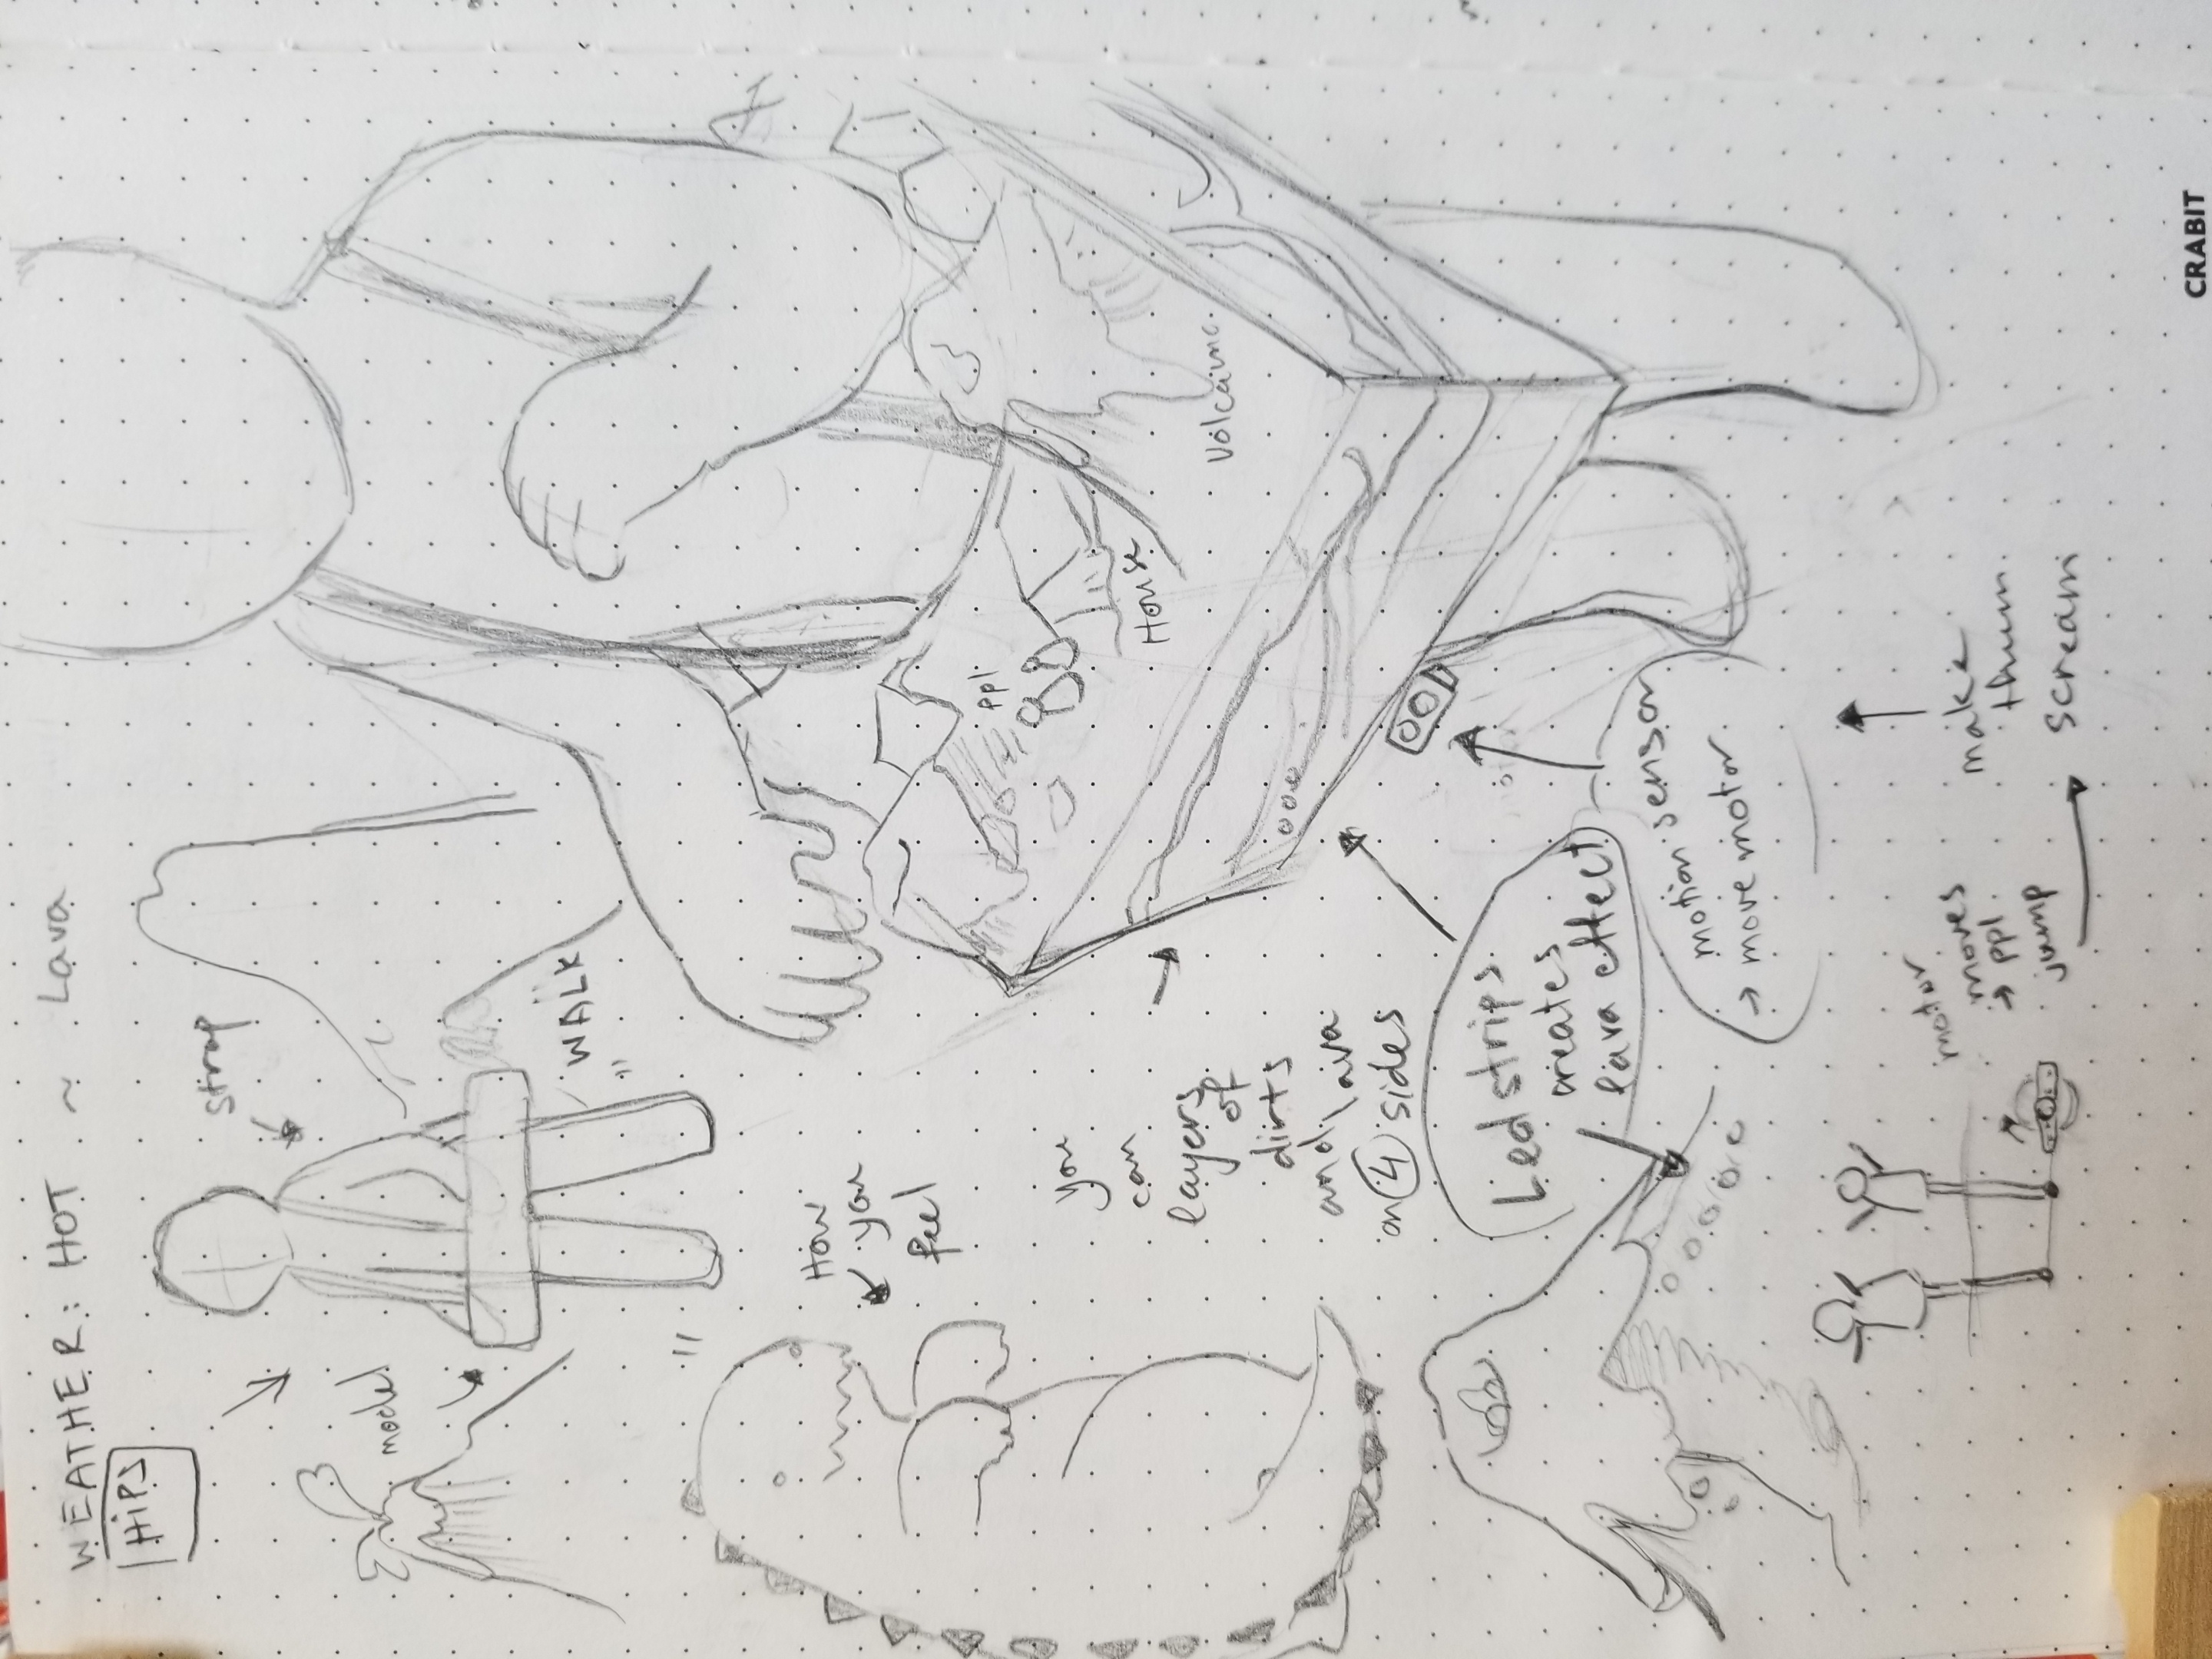 WEATHER: HOT ~ Lava
HiPS
strap
model
"WALK"
How
you
feel
ppl
House
you
can
layers
of
dirts
and lava
on 4 sides
Led strips
creates
lava effect
motion sensor
→ move motor
motor
moves
→ ppl
jump
make
thum
scream
CRABIT